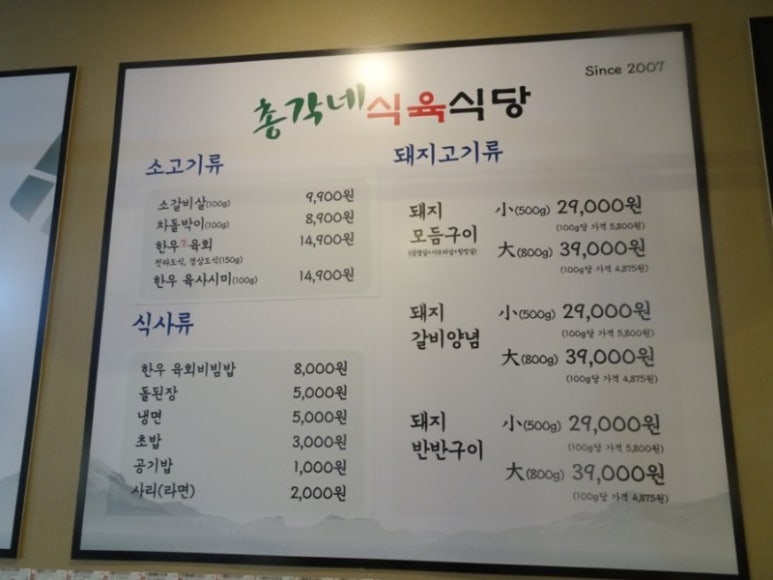 Since 2007
총각네식육식당
소고기류
소갈비살(100g) 9,900원
차돌박이(100g) 8,900원
한우 육회 14,900원
전라도식, 경상도식(150g)
한우 육사시미(100g) 14,900원
식사류
한우 육회비빔밥 8,000원
돌된장 5,000원
냉면 5,000원
초밥 3,000원
공기밥 1,000원
사리(라면) 2,000원
돼지고기류
돼지 모듬구이
小(500g) 29,000원
(100g당 가격 5,800원)
大(800g) 39,000원
(100g당 가격 4,875원)
돼지 갈비양념
小(500g) 29,000원
(100g당 가격 5,800원)
大(800g) 39,000원
(100g당 가격 4,875원)
돼지 반반구이
小(500g) 29,000원
(100g당 가격 5,800원)
大(800g) 39,000원
(100g당 가격 4,875원)